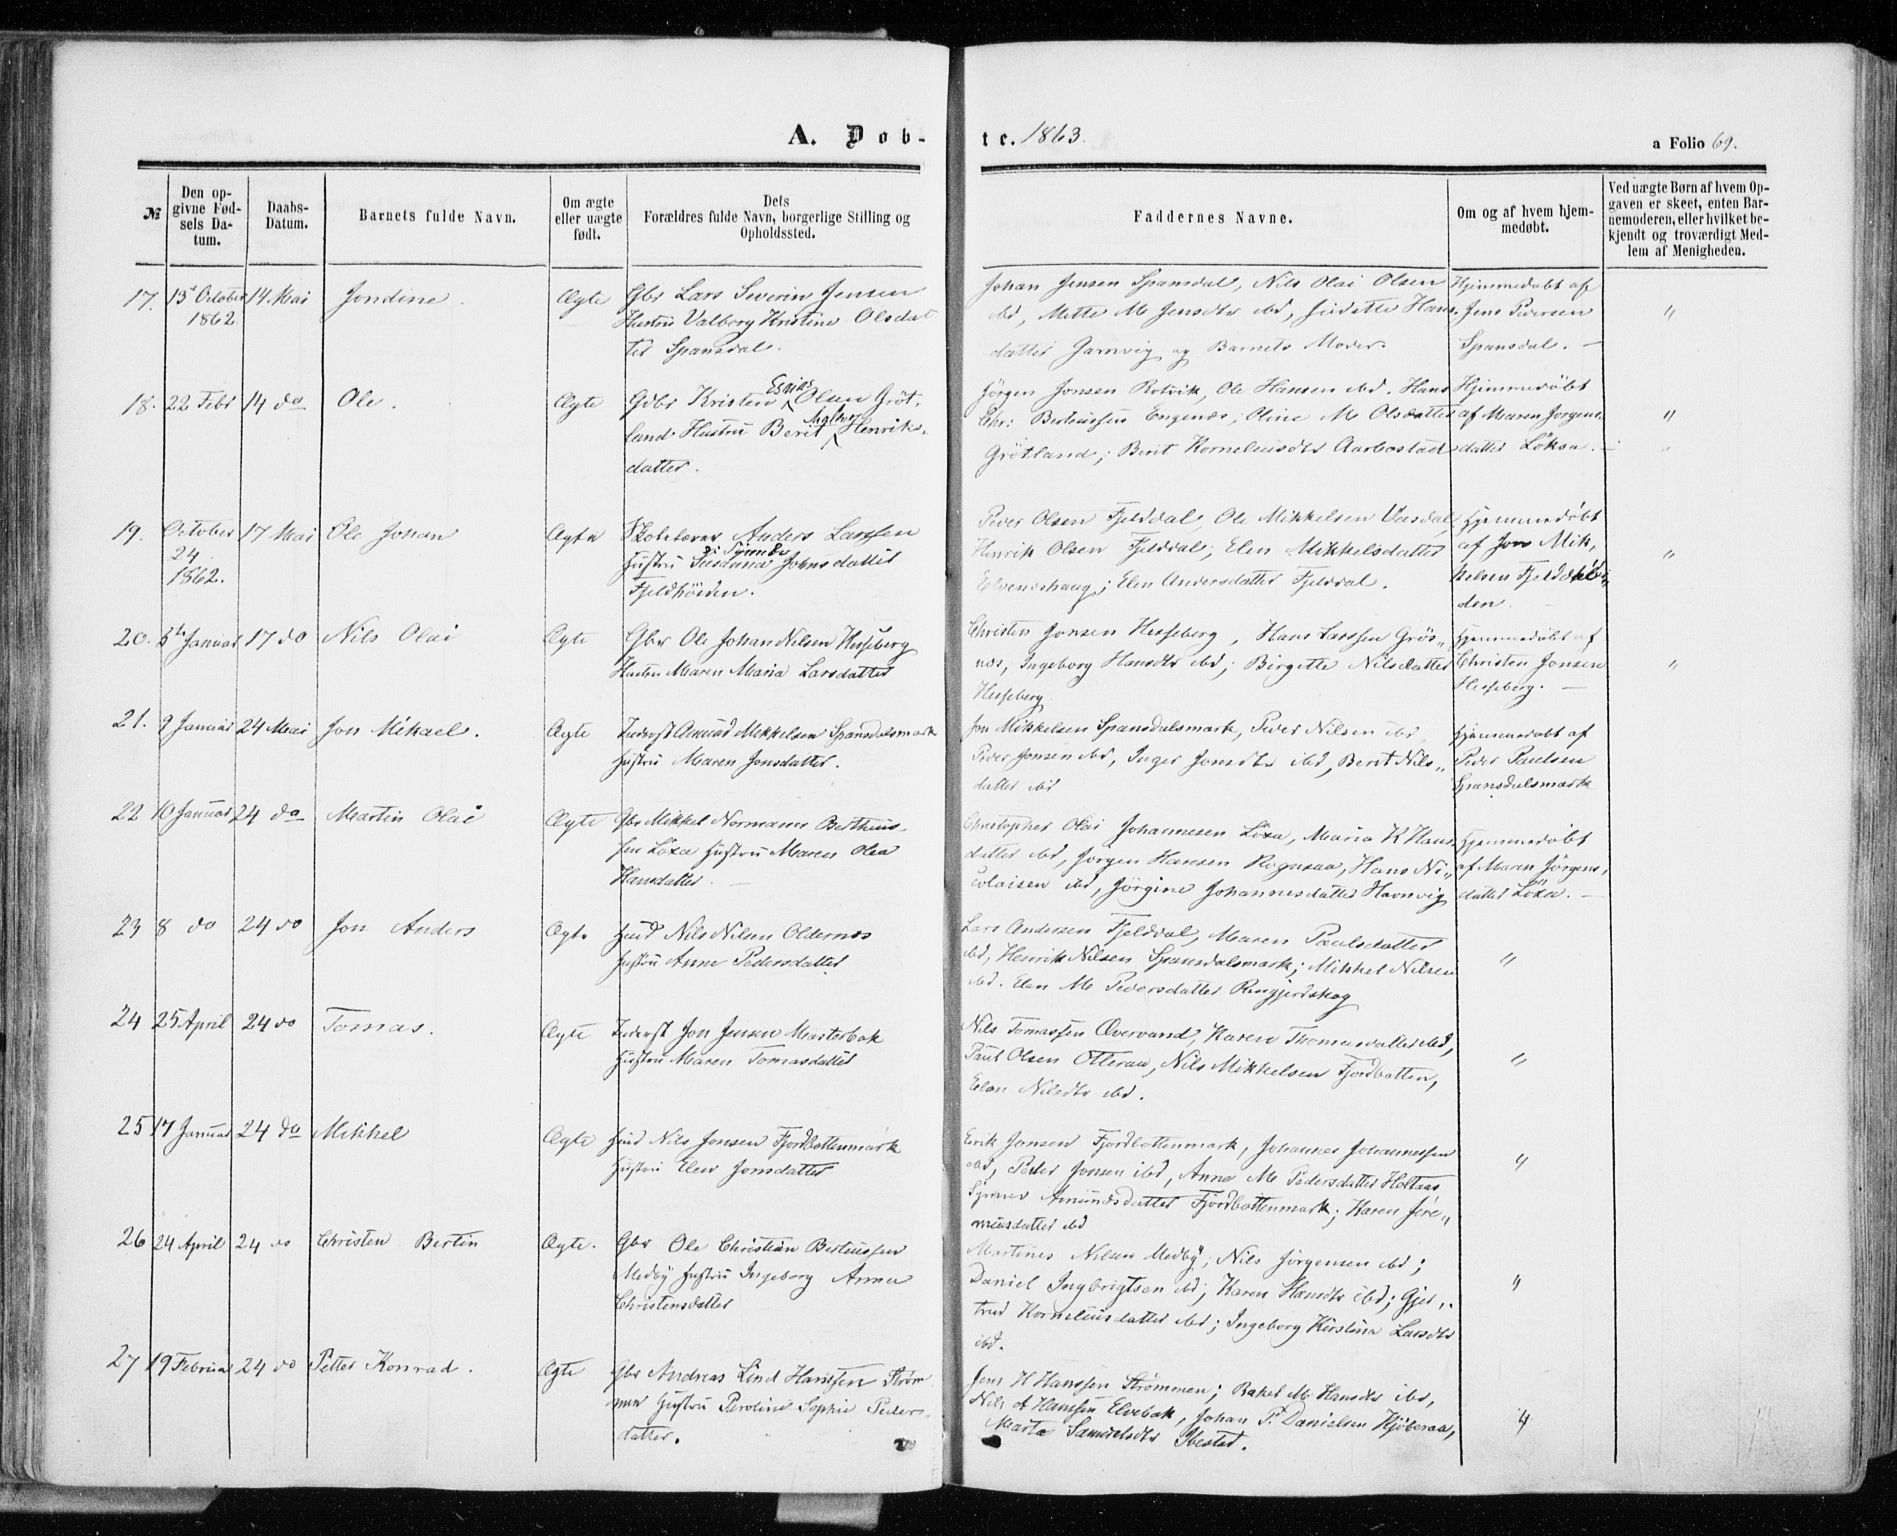 A. Døb-
te. 1863.
a Folio 69.
№
Den opgivne Fødsels Datum.
Daabs-Datum.
Barnets fulde Navn.
Om ægte eller uægte født.
Dets Forældres fulde Navn, borgerlige Stilling og Opholdssted.
Faddernes Navne.
Om og af hvem hjemmedøbt.
Ved uægte Børn af hvem Opgaven er skeet, enten Barnemoderen, eller hvilket bekjendt og troværdigt Medlem af Menigheden.
17. 15de October 14 Mai Jondine. Ægte Gbr Lars Severin Jensen
1862. Hustru Valborg Kristine Olsdat
ter Spansdal.
Johan Jensen Spansdal, Nils Olai Olsen
ibd, Mette M Jensdtr ibd, Hans
datter Jamvig og Barnets Moder.
Hjemmedøbt af
Jens Pedersen
Spansdal. —
"
18. 22 Febr 14 do Ole. Ægte Gdbr Kristen Esaias Olsen Grøt
land Hustru Berit Maglena Henriks-
datter.
Jørgen Jonsen Rotvik, Ole Hansen ibd. Hans
Chr: Berteussen Engenæs; Oline M Olsdatter
Grötland; Berit Korneliusdtr Aarbostad
Hjemmedöbt
af Maren Jørgens
datter Löksa. —
"
19. October 17 Mai Ole Johan Ægte Skolelærer Anders Larssen
24 Hustru Johnsdatter
1862. Fjeldhöiden.
Peder Olsen Fjelddal, Ole Mikkelsen Vasdal,
Henrik Olsen Fjelddal; Elen Mikkelsdatter
Elveneshaug; Elen Andersdatter Fjelddal.
Hjemmedøbt
af Jon Mik,
kelsen Fjeldhöi
den.
"
20. 5te Januar 17 do Nils Olai Ægte Gbr Ole Johan Nilsen Hesseberg
Hustru Maren Maria Larsdatter
Christen Jonsen Hesseberg, Hans Larssen Grös„
nes, Ingeborg Hansdtr ibd; Birgitte Nilsdatter
Hesseberg
Hjemmedøbt af
Christen Jonsen
Hesseberg. —
"
21. 9 Januar 24 Mai Jon Mikael. Ægte Inderst Amund Mikkelsen Spansdalsmark
Hustru Maren Jonsdatter.
Jon Mikkelsen Spansdalsmark, Peder Nilsen ibd,
Peder Jonsen ibd, Inger Jonsdtr ibd, Berit Nils„
datter ibd
Hjemmedøbt af
Peder Paulsen
Spansdalsmark
22 10 Januar 24 do Martin Olai Ægte Gbr Mikkel Normann Bertheus-
sen Löxa Hustru Maren Olea
Hansdatter. —
Christopher Olai Johannesen Löxa, Maria K Hans
datter ibd, Jørgen Hansen Rognsaa, Hans Ni„
colaisen ibd, Jörgine Johannesdatter Havnvig
Hjemmedøbt
af Maren Jörgens,
datter Löxa. —
23 8 do 24 do Jon Anders Ægte Huus Nils Nilsen Oldernæs
Hustru Anne Pedersdatter
Lars Andersen Fjelddal, Maren Paulsdatter
ibd, Henrik Nilsen Spansdalsmark; Mikkel Nilsen
ibd. Elen M Pedersdatter
"
24 25 April 24 do Tomas. Ægte Inderst Jon Jensen Masterbak
Hustru Maren Tomasdatter
Nils Tomassen Øvervand, Karen Thomasdatter ibd,
Paul Olsen Otteraa, Nils Mikkelsen Fjordbotten,
Elen Nilsdtr ibd.
"
25 17 Januar 24 do Mikkel Ægte Nils Jonsen Fjordbottenmark
Hustru Elen Jonsdatter
Erik Jonsen Fjordbottenmark, Johannes Johannessen
ibd, Peder Jonsen ibd, Anne M Pedersdatter Holtaas
Synnev Amundsdatter Fjordbottenmark; Karen Jere„
miasdatter ibd
"
26 24 April 24 do Christen Bertin Ægte. Gbr Ole Christian Berteussen
Medby Hustru Ingeborg Anna
Christensdatter
Martines Nilsen Medby; Nils Jørgensen ibd;
Daniel Ingbrigtsen ibd; Karen Hansdtr ibd; Gjer„
trud Korneliusdatter ibd; Ingeborg Kirstina Larsdtr
ibd.
"
27 19 Februar 24 do Petter Konrad. Ægte Gbr Andreas Lind Hanssen Strøm
men Hustru Peroline Sophie Peders
datter.
Jens H Hanssen Strømmen; Rakel M Hansdtr ibd,
Nils A Hanssen Elvebak, Johan P. Danielsen Kjöberaa,
Marta Samuelsdtr Ibestad.
"